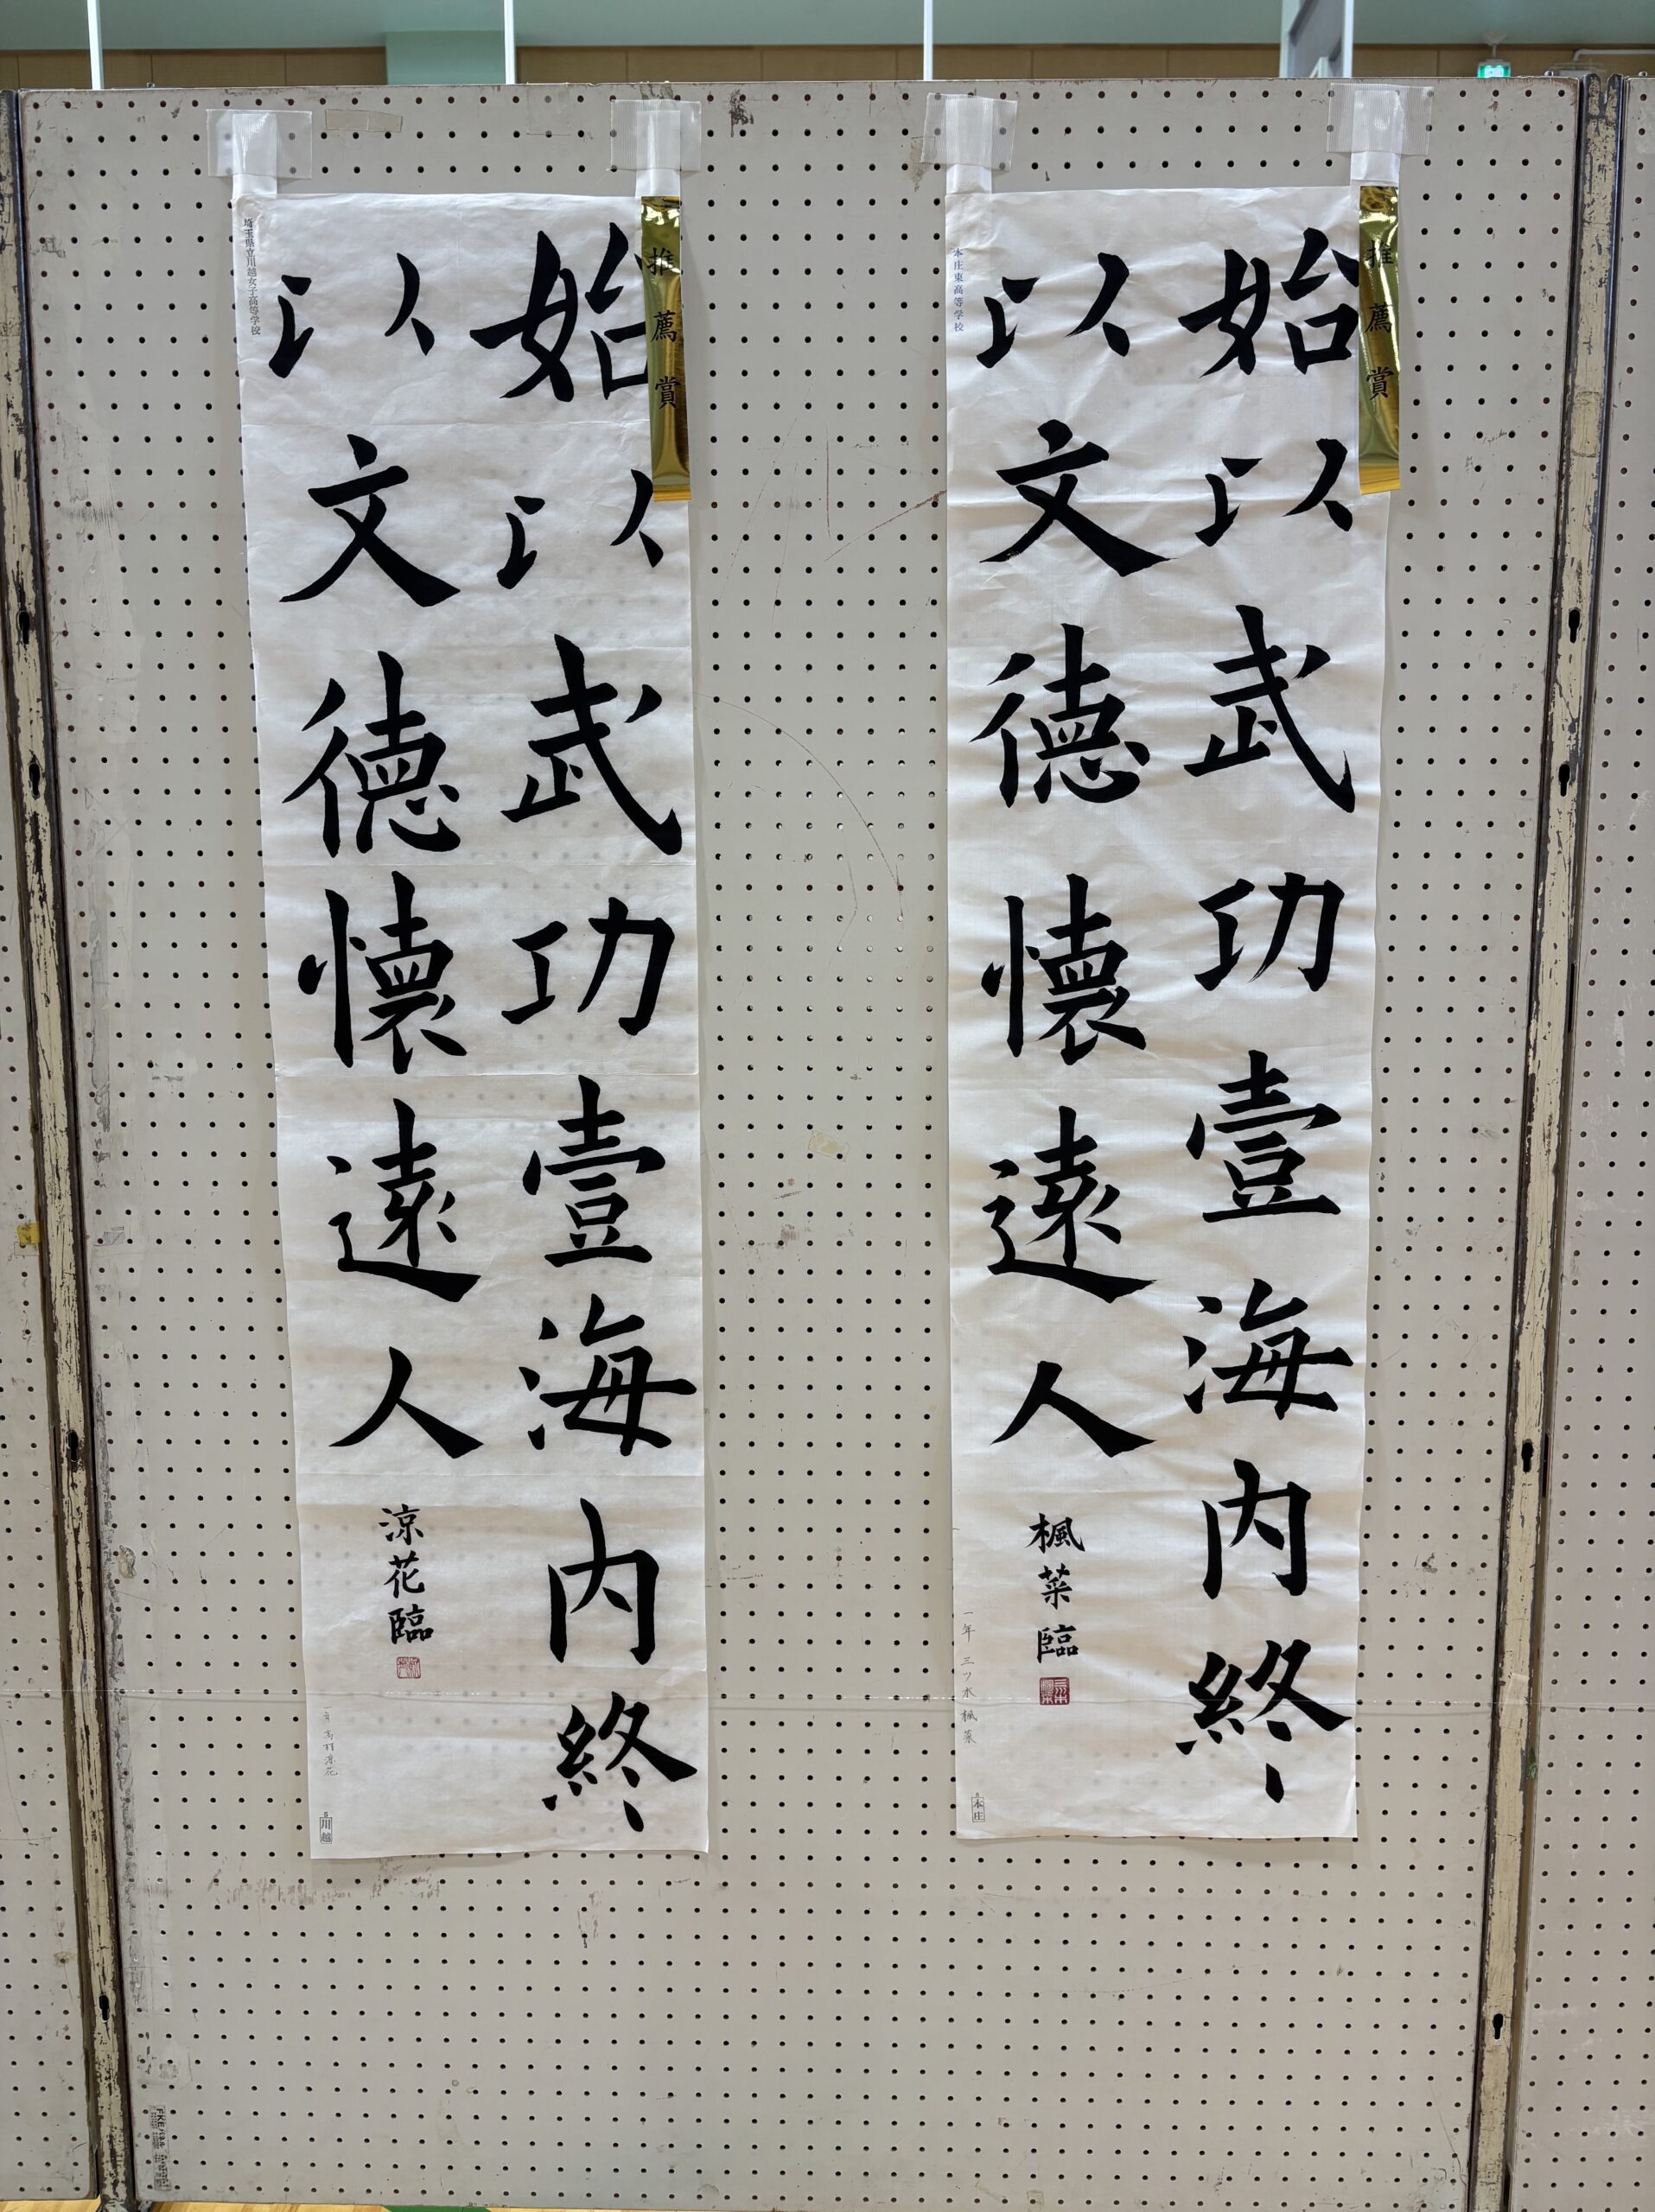 推薦賞
始以武功壹海内終
以文徳懐遠人
楓菜臨
本庄東高等学校
一年 三ツ木楓菜
本庄
推薦賞
始以武功壹海内終
以文徳懐遠人
涼花臨
埼玉県立川越女子高等学校
川越